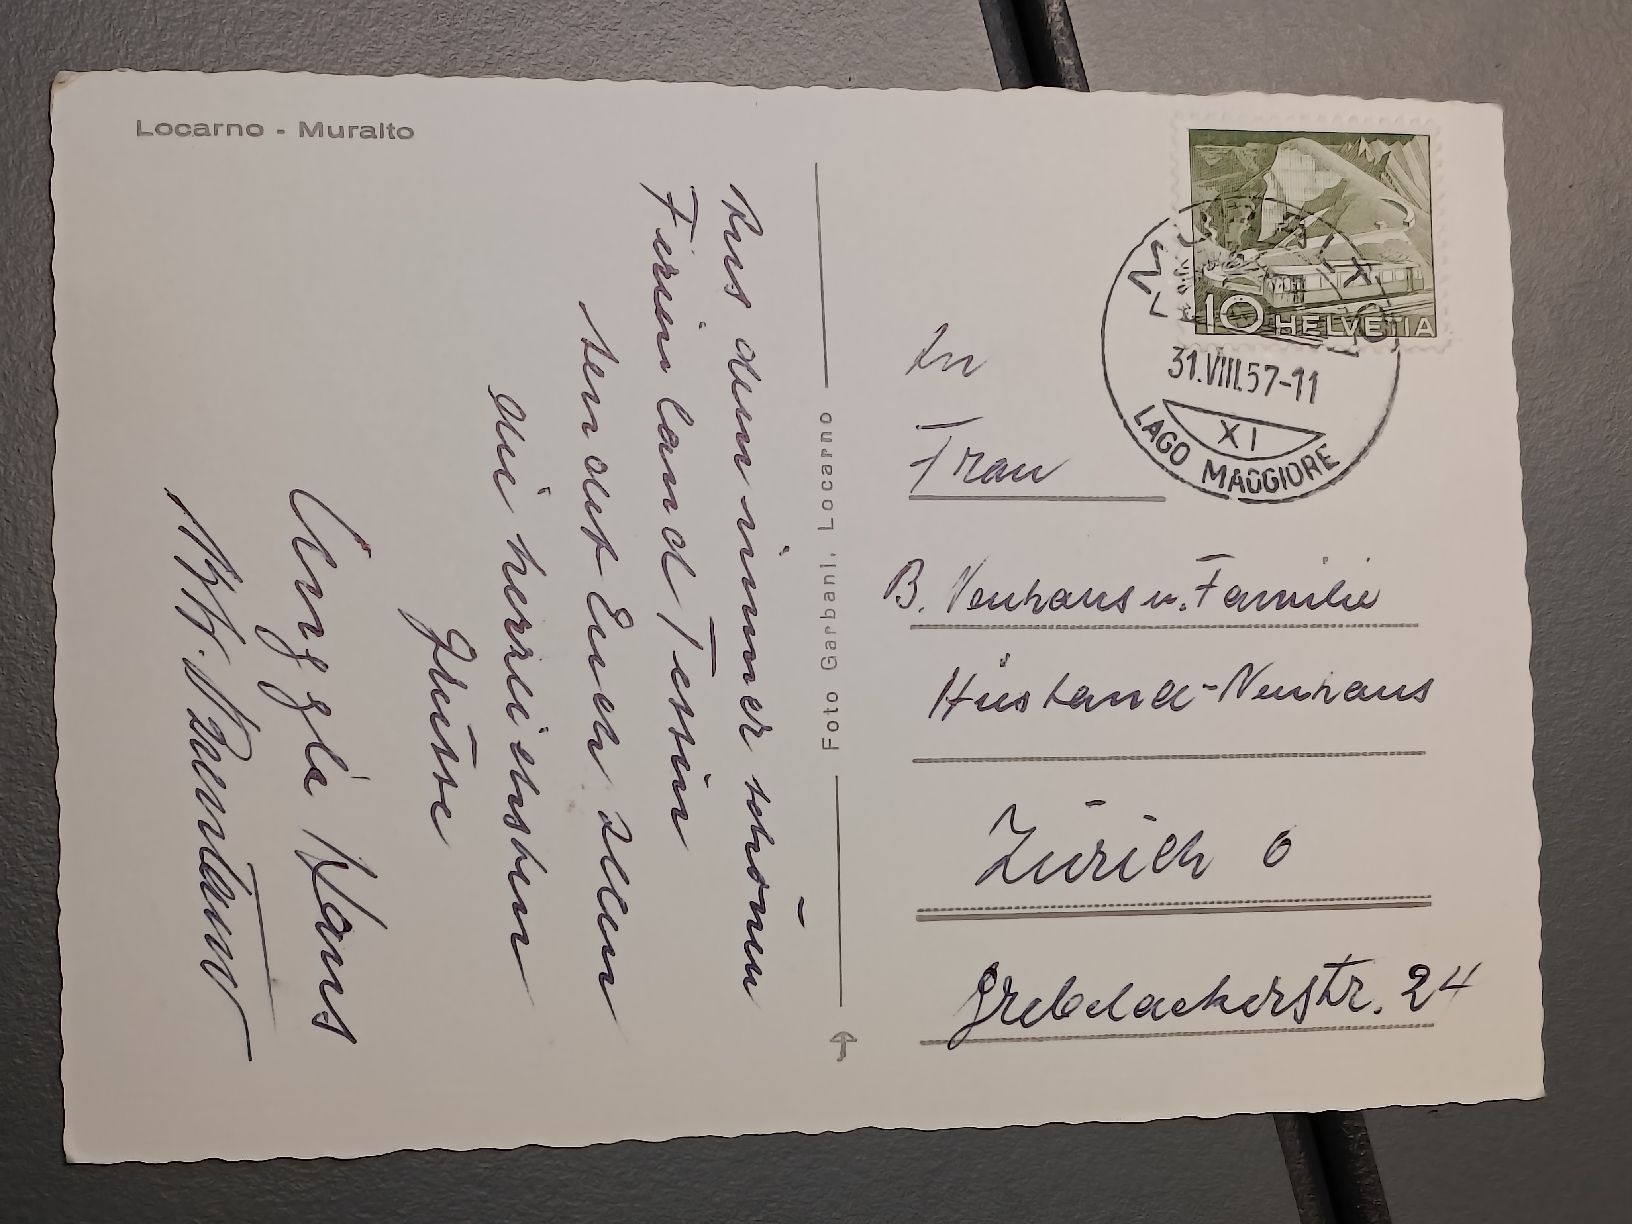 Locarno - Muralto
Aus dem immer schönen
Ferienland Tessin
sendet Euch allen
die herzlichsten
Grüsse
Hans
Foto Garbani, Locarno
10 HELVETIA
MURALTO
31.VIII.57-11
XI
LAGO MAGGIORE
An
Frau
B. Neuhaus u. Familie
Hüstand-Neuhaus
Zürich 6
Grebelackerstr. 24